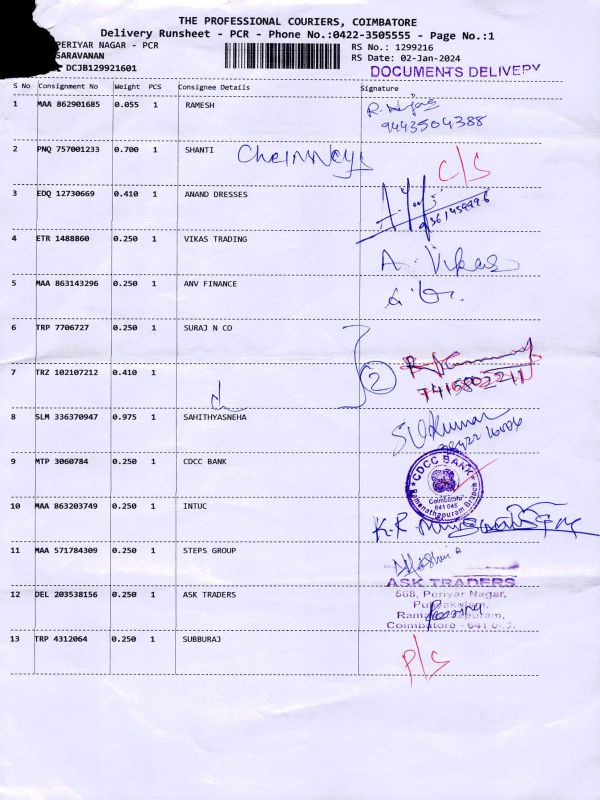 THE PROFESSIONAL COURIERS, COIMBATORE
Delivery Runsheet - PCR - Phone No.:0422-3505555 - Page No.:1
PERIYAR NAGAR - PCR
RS No.: 1299216
SARAVANAN
RS Date: 02-Jan-2024
DCJB129921601
DOCUMENTS DELIVERY
S No Consignment No Weight PCS Consignee Details Signature
1 MAA 862901685 0.055 1 RAMESH
9443504388
2 PNQ 757001233 0.700 1 SHANTI
C/S
3 EDQ 12730669 0.410 1 ANAND DRESSES
4 ETR 1488860 0.250 1 VIKAS TRADING
A. Vikas
5 MAA 863143296 0.250 1 ANV FINANCE
6 TRP 7706727 0.250 1 SURAJ N CO
2
7 TRZ 102107212 0.410 1
7415802211
8 SLM 336370947 0.975 1 SAHITHYASNEHA
9 MTP 3060784 0.250 1 CDCC BANK
CDCC BANK
Coimbatore
641 045
Ramanathapuram Branch
10 MAA 863203749 0.250 1 INTUC
11 MAA 571784309 0.250 1 STEPS GROUP
12 DEL 203538156 0.250 1 ASK TRADERS
ASK TRADERS
568, Periyar Nagar,
Coimbatore - 641
13 TRP 4312064 0.250 1 SUBBURAJ
P/S